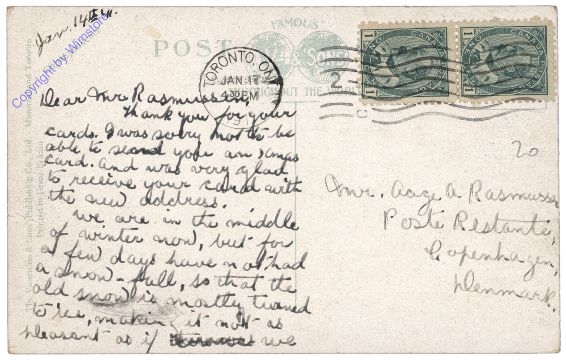 Jan. 14th
Copyright by Wimstore
FAMOUS
POST
THROUGHOUT THE
TORONTO, ONT
JAN 17
4 30 PM
CANADA POSTAGE
1
1
CANADA POSTAGE
1
1
Dear Mr Rasmussen,
Thank you for your
cards. I was sorry not to be
able to send you an Xmas
card. And was very glad
to receive your card with
the new address.
We are in the middle
of winter now, but for
a few days have not had
a snow-fall, so that the
old snow is mostly turned
to ice, making it not as
pleasant as if we
20
Mr. Aage A Rasmussen
Poste Restante,
Copenhagen,
Denmark.
Printed in Great Britain